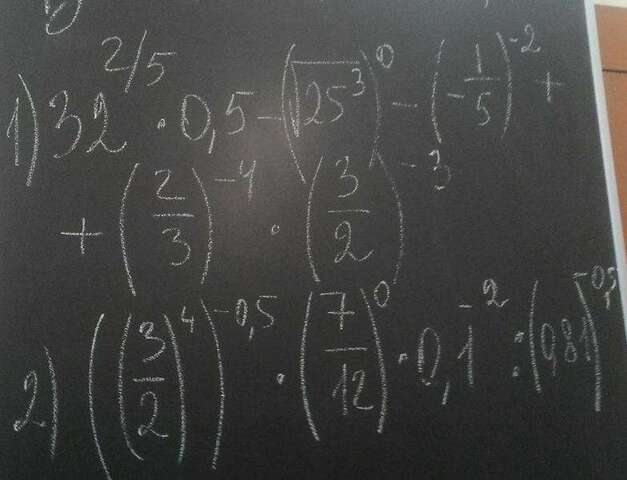 1) 32^(2/5) · 0,5 - (√25³)^0 - (-1/5)^(-2) +
+ (2/3)^(-4) · (3/2)^(-3)
2) ((3/2)^4)^(-0,5) · (7/12)^0 · 0,1^(-2) : (0,81)^(-0,5)